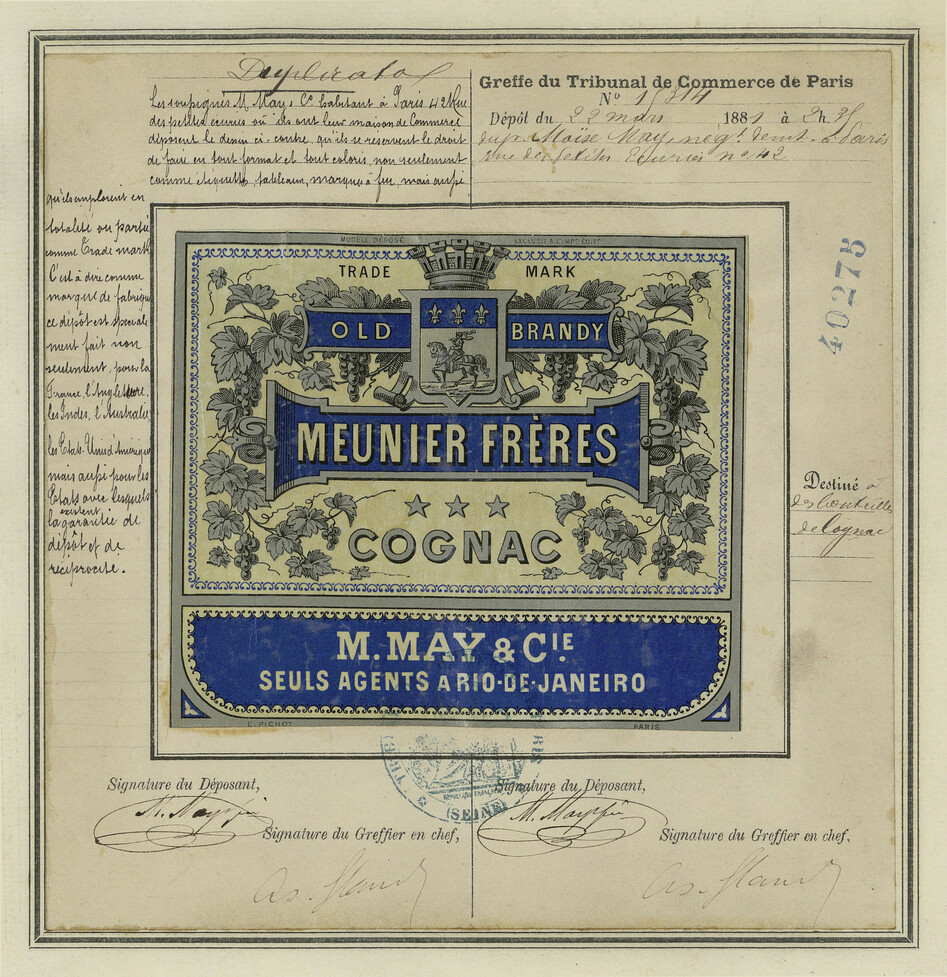 Duplicata
Les soussignés M. May & Cⁱᵉ habitant à Paris 42 Rue
des petites écuries où ils ont leur maison de Commerce
déposent le dessin ci-contre, qu'ils se réservent le droit
de faire en tout format et tout coloris, non seulement
comme étiquette, tableaux, marque à feu, mais aussi
qu'ils emploient en
totalité ou partie
comme Trade mark
C'est à dire comme
marque de fabrique
ce dépôt est spéciale
ment fait non
seulement pour la
France, l'Angleterre,
les Indes, l'Australie
les Etats-Unis d'Amérique
mais aussi pour les
Etats avec lesquels
existent
la garantie de
dépôt et de
réciprocité.
Greffe du Tribunal de Commerce de Paris
Nº 15314
Dépôt du 22 mars 1881 à 2h
Moïse May, négt demt à Paris
rue des Petites Ecuries nº 42
40275
MODÈLE DÉPOSÉ
TRADE MARK
OLD BRANDY
MEUNIER FRÈRES
COGNAC
M. MAY & CIE.
SEULS AGENTS A RIO-DE-JANEIRO
C. PICHOT PARIS
Destiné à
des bouteilles
de Cognac
(SEINE)
Signature du Déposant,
Signature du Greffier en chef,
Signature du Déposant,
Signature du Greffier en chef,